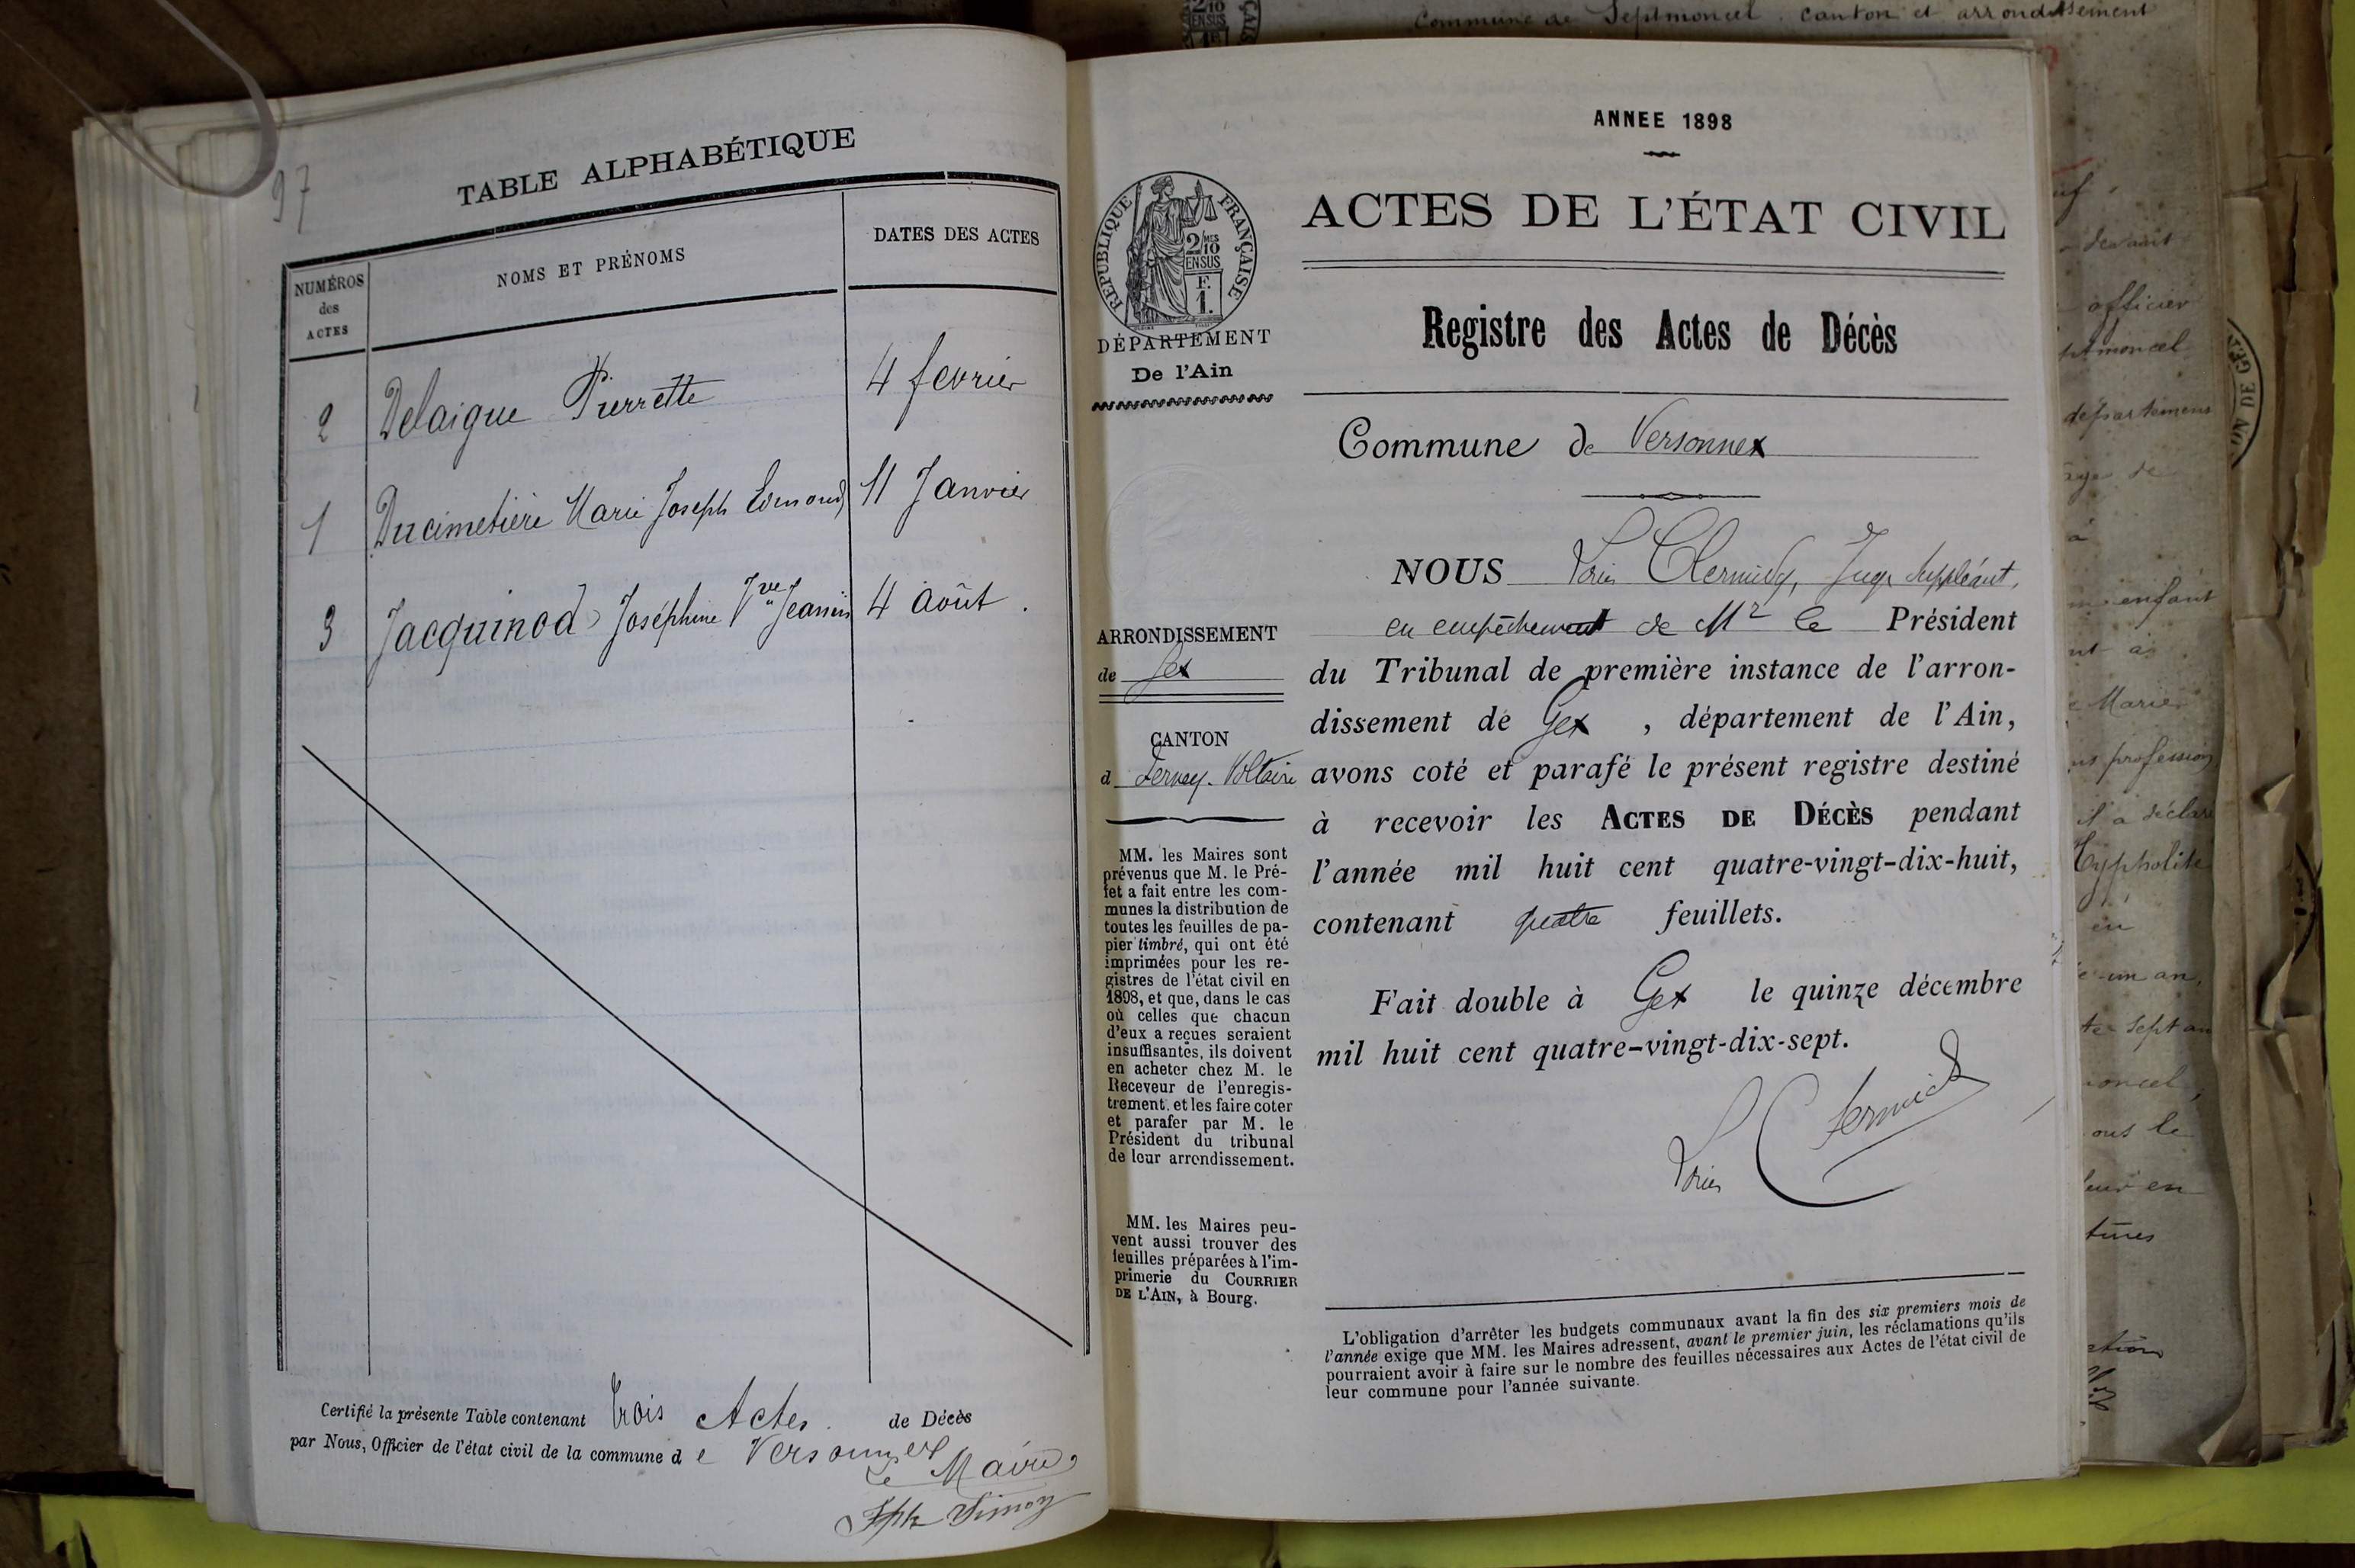 97
TABLE ALPHABÉTIQUE
NUMÉROS des ACTES
NOMS ET PRÉNOMS
DATES DES ACTES
2 Delaigue Pierrette 4 fevrier
1 Ducimetière Marie Joseph Edmond 11 Janvier
3 Jacquinod Joséphine Vve Jeannin 4 Août.
Certifié la présente Table contenant trois Actes de Décès
par Nous, Officier de l'état civil de la commune de Versonnex
Le Maire,
Jph Simon
ANNEE 1898
ACTES DE L'ÉTAT CIVIL
RÉPUBLIQUE FRANÇAISE
2/10MES
EN SUS
F.
1.
DÉPARTEMENT
De l'Ain
Registre des Actes de Décès
Commune de Versonnex
ARRONDISSEMENT
de Gex
CANTON
d Ferney-Voltaire
MM. les Maires sont
prévenus que M. le Pré-
fet a fait entre les com-
munes la distribution de
toutes les feuilles de pa-
pier timbré, qui ont été
imprimées pour les re-
gistres de l'état civil en
1898, et que, dans le cas
où celles que chacun
d'eux a reçues seraient
insuffisantes, ils doivent
en acheter chez M. le
Receveur de l'enregis-
trement. et les faire coter
et parafer par M. le
Président du tribunal
de leur arrondissement.
MM. les Maires peu-
vent aussi trouver des
feuilles préparées à l'im-
primerie du COURRIER
DE L'AIN, à Bourg.
NOUS Juge Suppléant,
en empêchement de Mr le Président
du Tribunal de première instance de l'arron-
dissement de Gex, département de l'Ain,
avons coté et parafé le présent registre destiné
à recevoir les ACTES DE DÉCÈS pendant
l'année mil huit cent quatre-vingt-dix-huit,
contenant quatre feuillets.
Fait double à Gex le quinze décembre
mil huit cent quatre-vingt-dix-sept.
L'obligation d'arrêter les budgets communaux avant la fin des six premiers mois de
l'année exige que MM. les Maires adressent, avant le premier juin, les réclamations qu'ils
pourraient avoir à faire sur le nombre des feuilles nécessaires aux Actes de l'état civil de
leur commune pour l'année suivante.
Commune de Septmoncel canton et arrondissement
devant
officier
département
enfant
Marie
profession
il a déclaré
Hyppolite
en
un an,
sept an